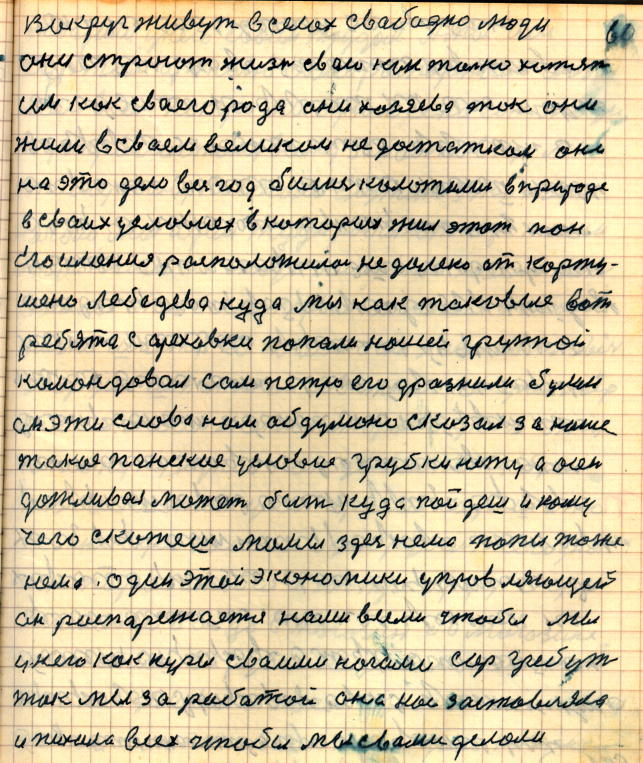 60
вокруг живут в селах свабадно люди
они строют жизн сваю как толко хотят
им как сваего рода они хозяева так они
жили в сваем великом недостатком они
на это дело вес год билис колотилис в природе
в сваих условиех в которих жил этот пан
его имения расположилас недалеко от карту-
шено Лебедева куда мы как таковые вот
ребята с ореховки попали нашей групой
командовал сам петро его дразнили булин
он эти слова нам абдумано сказал за наше
такое панские условие грубки нету а осен
дожливая может быт куда пойдеш и кому
чего скажеш мамы здес нема папы тоже
нема. один этой экономики управляющей
он распарежается нами всеми чтобы мы
у него как куры сваими ногами сор гребут
так мы за работой она нас заставляла
и пихала всех чтобы мы свами делали